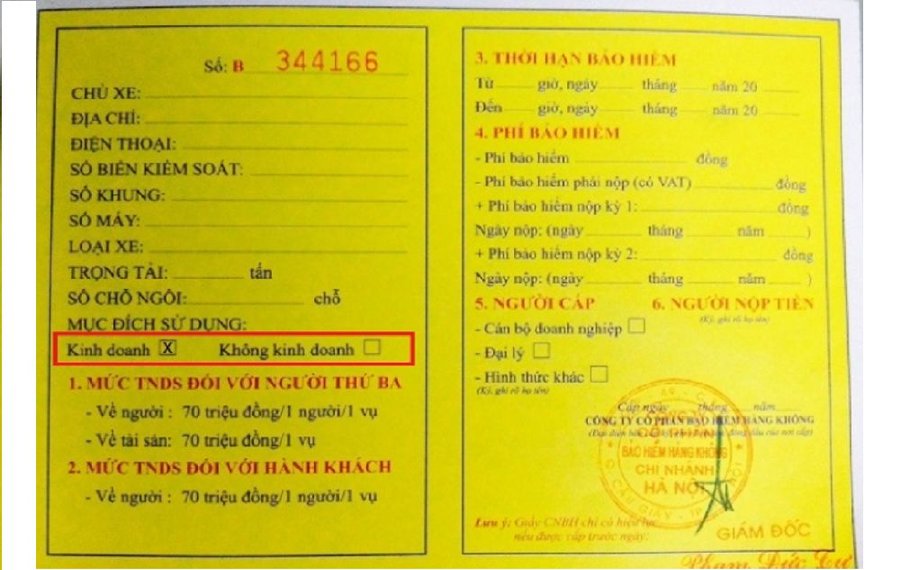 Số: B 344166
CHỦ XE:
ĐỊA CHỈ:
ĐIỆN THOẠI:
SỐ BIỂN KIỂM SOÁT:
SỐ KHUNG:
SỐ MÁY:
LOẠI XE:
TRỌNG TẢI: tấn
SỐ CHỖ NGỒI: chỗ
MỤC ĐÍCH SỬ DỤNG:
Kinh doanh X Không kinh doanh
1. MỨC TNDS ĐỐI VỚI NGƯỜI THỨ BA
- Về người : 70 triệu đồng/1 người/1 vụ
- Về tài sản: 70 triệu đồng/1 vụ
2. MỨC TNDS ĐỐI VỚI HÀNH KHÁCH
- Về người : 70 triệu đồng/1 người/1 vụ
3. THỜI HẠN BẢO HIỂM
Từ giờ, ngày tháng năm 20
Đến giờ, ngày tháng năm 20
4. PHÍ BẢO HIỂM
- Phí bảo hiểm đồng
- Phí bảo hiểm phải nộp (có VAT) đồng
+ Phí bảo hiểm nộp kỳ 1: đồng
Ngày nộp: (ngày tháng năm )
+ Phí bảo hiểm nộp kỳ 2: đồng
Ngày nộp: (ngày tháng năm )
5. NGƯỜI CẤP 6. NGƯỜI NỘP TIỀN
(Ký, ghi rõ họ tên)
- Cán bộ doanh nghiệp
- Đại lý
- Hình thức khác
(Ký, ghi rõ họ tên)
Cấp ngày tháng năm
CÔNG TY CỔ PHẦN BẢO HIỂM HÀNG KHÔNG
CỔ PHẦN
BẢO HIỂM HÀNG KHÔNG
CHI NHÁNH
HÀ NỘI
Lưu ý: Giấy CNBH chỉ có hiệu lực
nếu được cấp trước ngày:
GIÁM ĐỐC
Phạm Đức